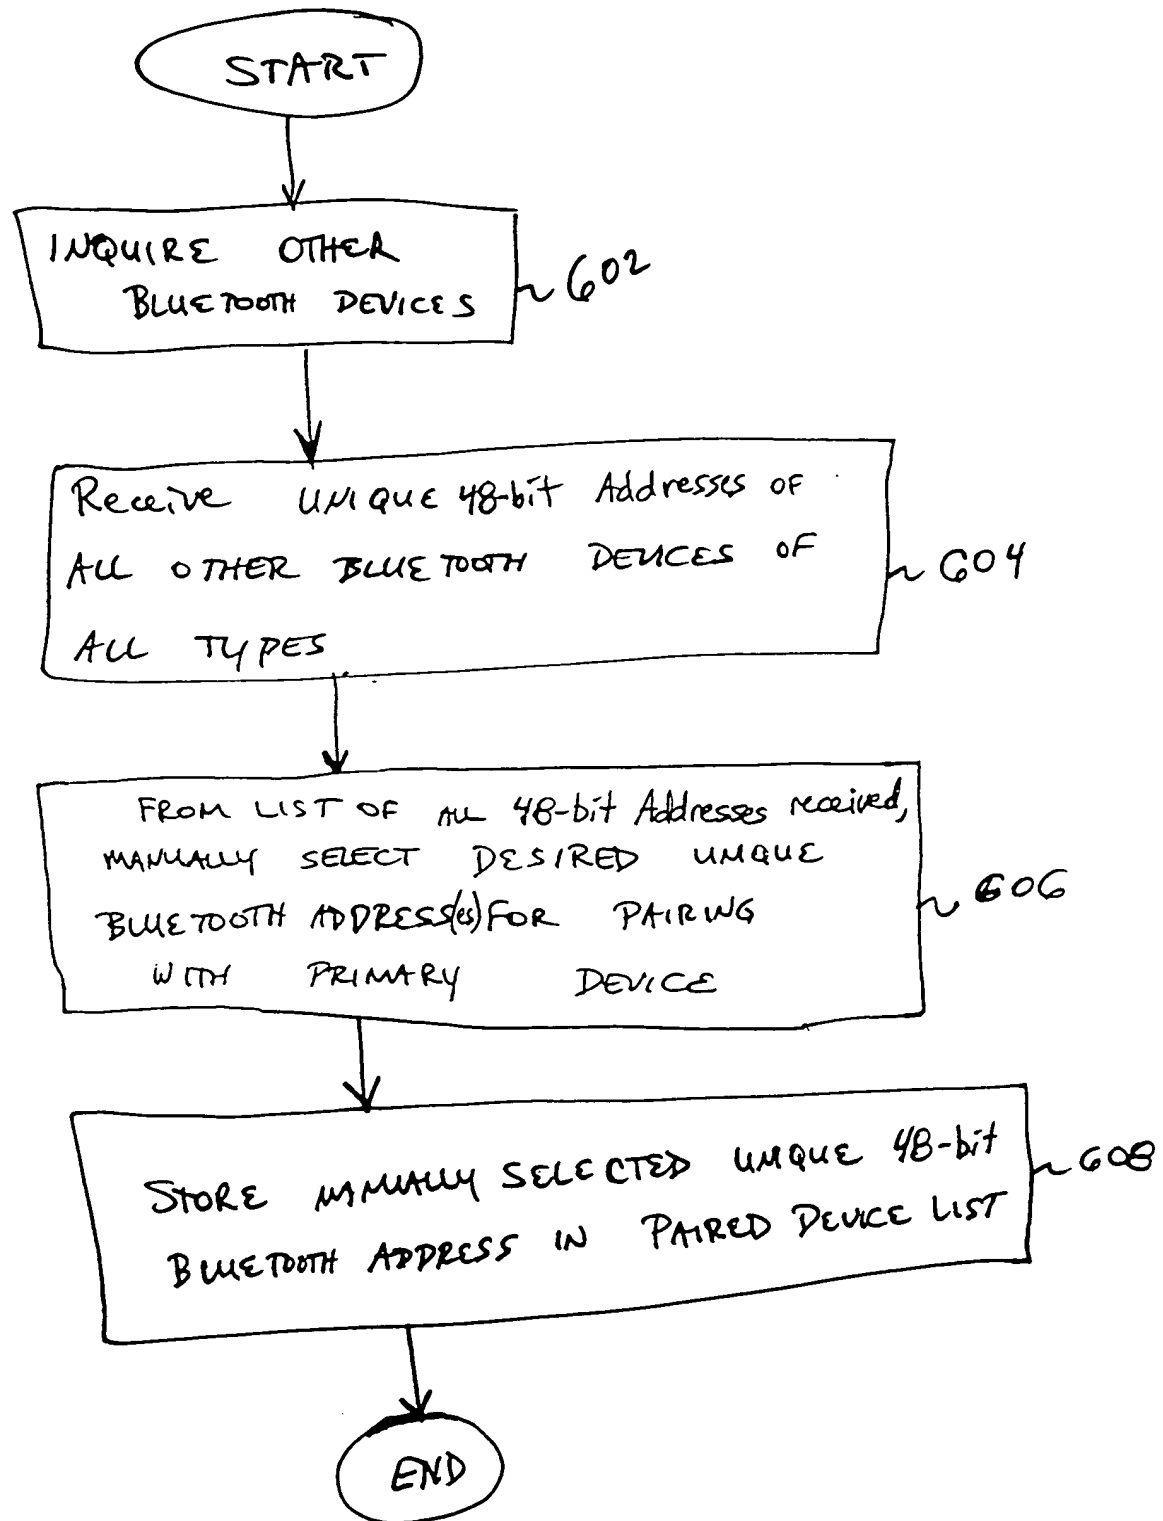 START
INQUIRE OTHER
BLUETOOTH DEVICES
602
Receive UNIQUE 48-bit Addresses OF
ALL OTHER BLUETOOTH DEVICES OF
ALL TYPES
604
FROM LIST OF ALL 48-bit Addresses received,
MANUALLY SELECT DESIRED UNIQUE
BLUETOOTH ADDRESS(es) FOR PAIRING
WITH PRIMARY DEVICE
606
STORE MANUALLY SELECTED UNIQUE 48-bit
BLUETOOTH ADDRESS IN PAIRED DEVICE LIST
608
END